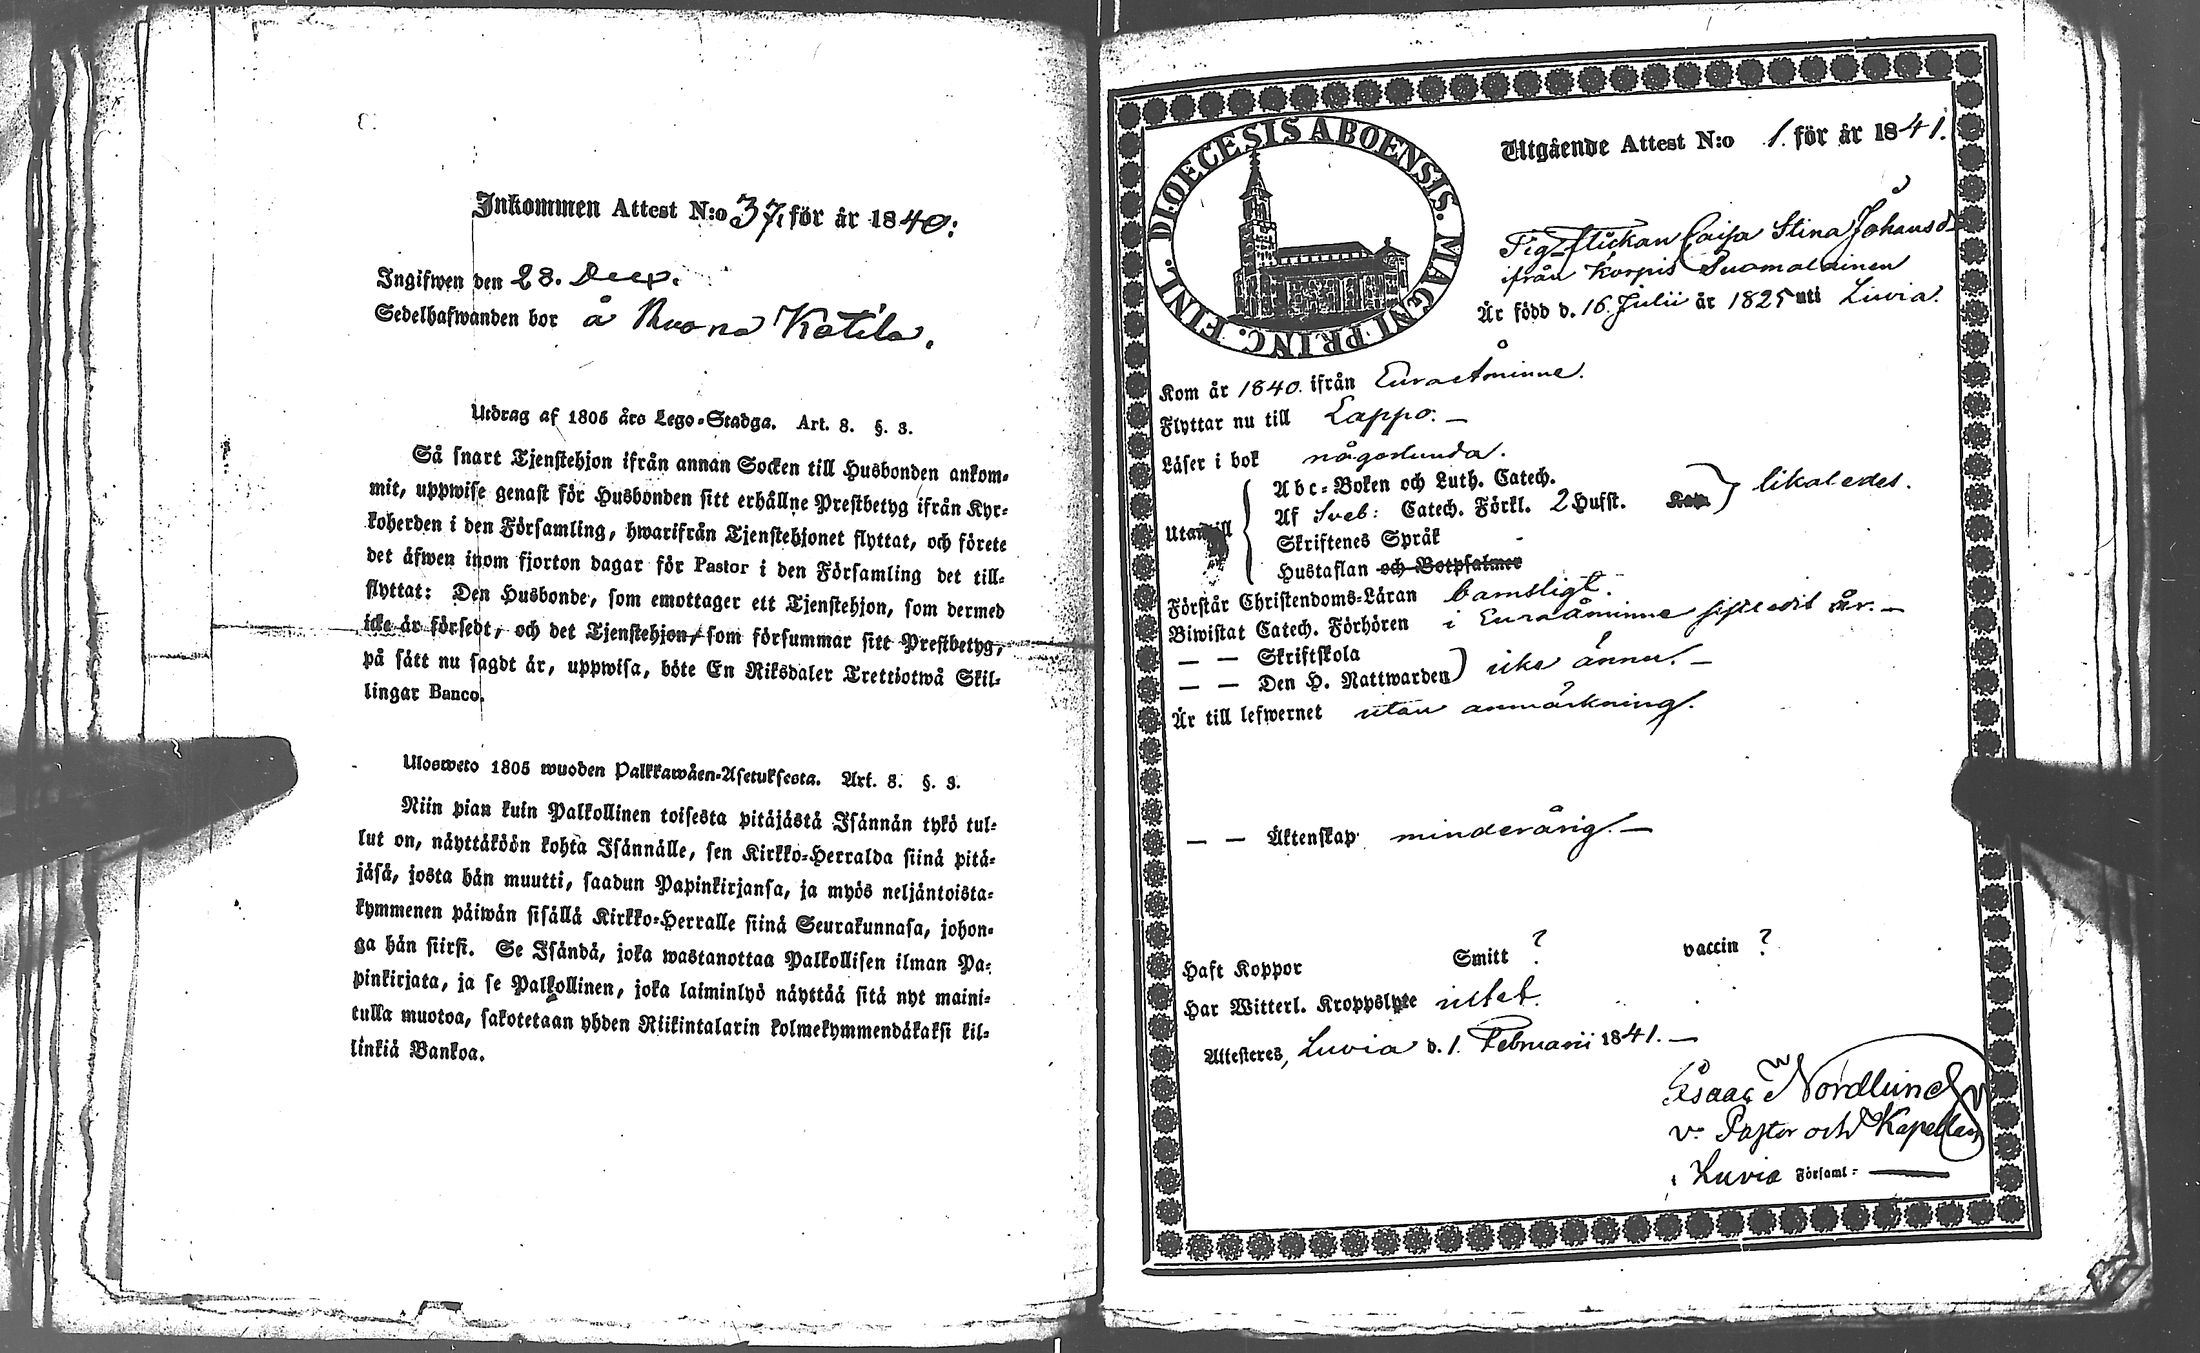 Inkommen Attest N:o 37, för år 1840:
Ingifwen den 28. Decp.
Sedelhafwanden bor å Ruona Katila.
Utdrag af 1805 års Lego-Stadga. Art. 8. §. 3.
Så snart Tjenstehjon ifrån annan Socken till Husbonden ankom-
mit, uppwise genast för Husbonden sitt erhållne Prestbetyg ifrån Kyr-
koherden i den Församling, hwarifrån Tjenstehjonet flyttat, och förete
det äfwen inom fjorton dagar för Pastor i den Församling det till-
flyttat: Den Husbonde, som emottager ett Tjenstehjon, som dermed
icke är försedt, och det Tjenstehjon, som försummar sitt Prestbetyg,
på sätt nu sagdt är, uppwisa, böte En Riksdaler Trettiotwå Skil-
lingar Banco.
Ulosweto 1805 wuoden Palkkawäen-Asetuksesta. Art. 8. §. 3.
Niin pian kuin Palkollinen toisesta pitäjästä Isännän tykö tul-
lut on, näyttäköön kohta Isännälle, sen Kirkko-Herralda siinä pitä-
jäsä, josta hän muutti, saadun Papinkirjansa, ja myös neljäntoista-
kymmenen päiwän sisällä Kirkko-Herralle siinä Seurakunnasa, johon-
ga hän siirsi. Se Isändä, joka wastanottaa Palkollisen ilman Pa-
pinkirjata, ja se Palkollinen, joka laiminlyö näyttää sitä nyt maini-
tulla muotoa, sakotetaan yhden Riikintalarin kolmekymmendäkaksi kil-
linkiä Bankoa.
DIOECESIS ABOENSIS. MAGNI PRINC. FINL.
Utgående Attest N:o 1. för år 1841.
Flickan Caisa Stina Johansd
ifrån Korpis Suomalainen
Är född d. 16 Julii år 1825 uti Luvia.
Kom år 1840. ifrån Euraåminne.
Flyttar nu till Lappo. —
Läser i bok någorlunda.
Abc-Boken och Luth. Catech.
Af Sveb: Catech. Förkl. 2 Hufst. Kap. likaledes.
Utantill
Skriftenes Språk
Hustaflan och Botpsalmer
Förstår Christendoms-Läran barnsligt.
Biwistat Catech. Förhören i Euraåminne sistledit år. —
— — Skriftskola
— — Den H. Nattwarden icke ännu. —
Är till lefwernet utan anmärkning.
— — Äktenskap minderårig. —
Haft Koppor Smitt ? vaccin ?
Har Witterl. Kroppslyte intet.
Attesteres, Luvia d. 1. Februarii 1841. —
Isaac Nordlund
v. Pastor och Kapellan
i Luvia Församl: